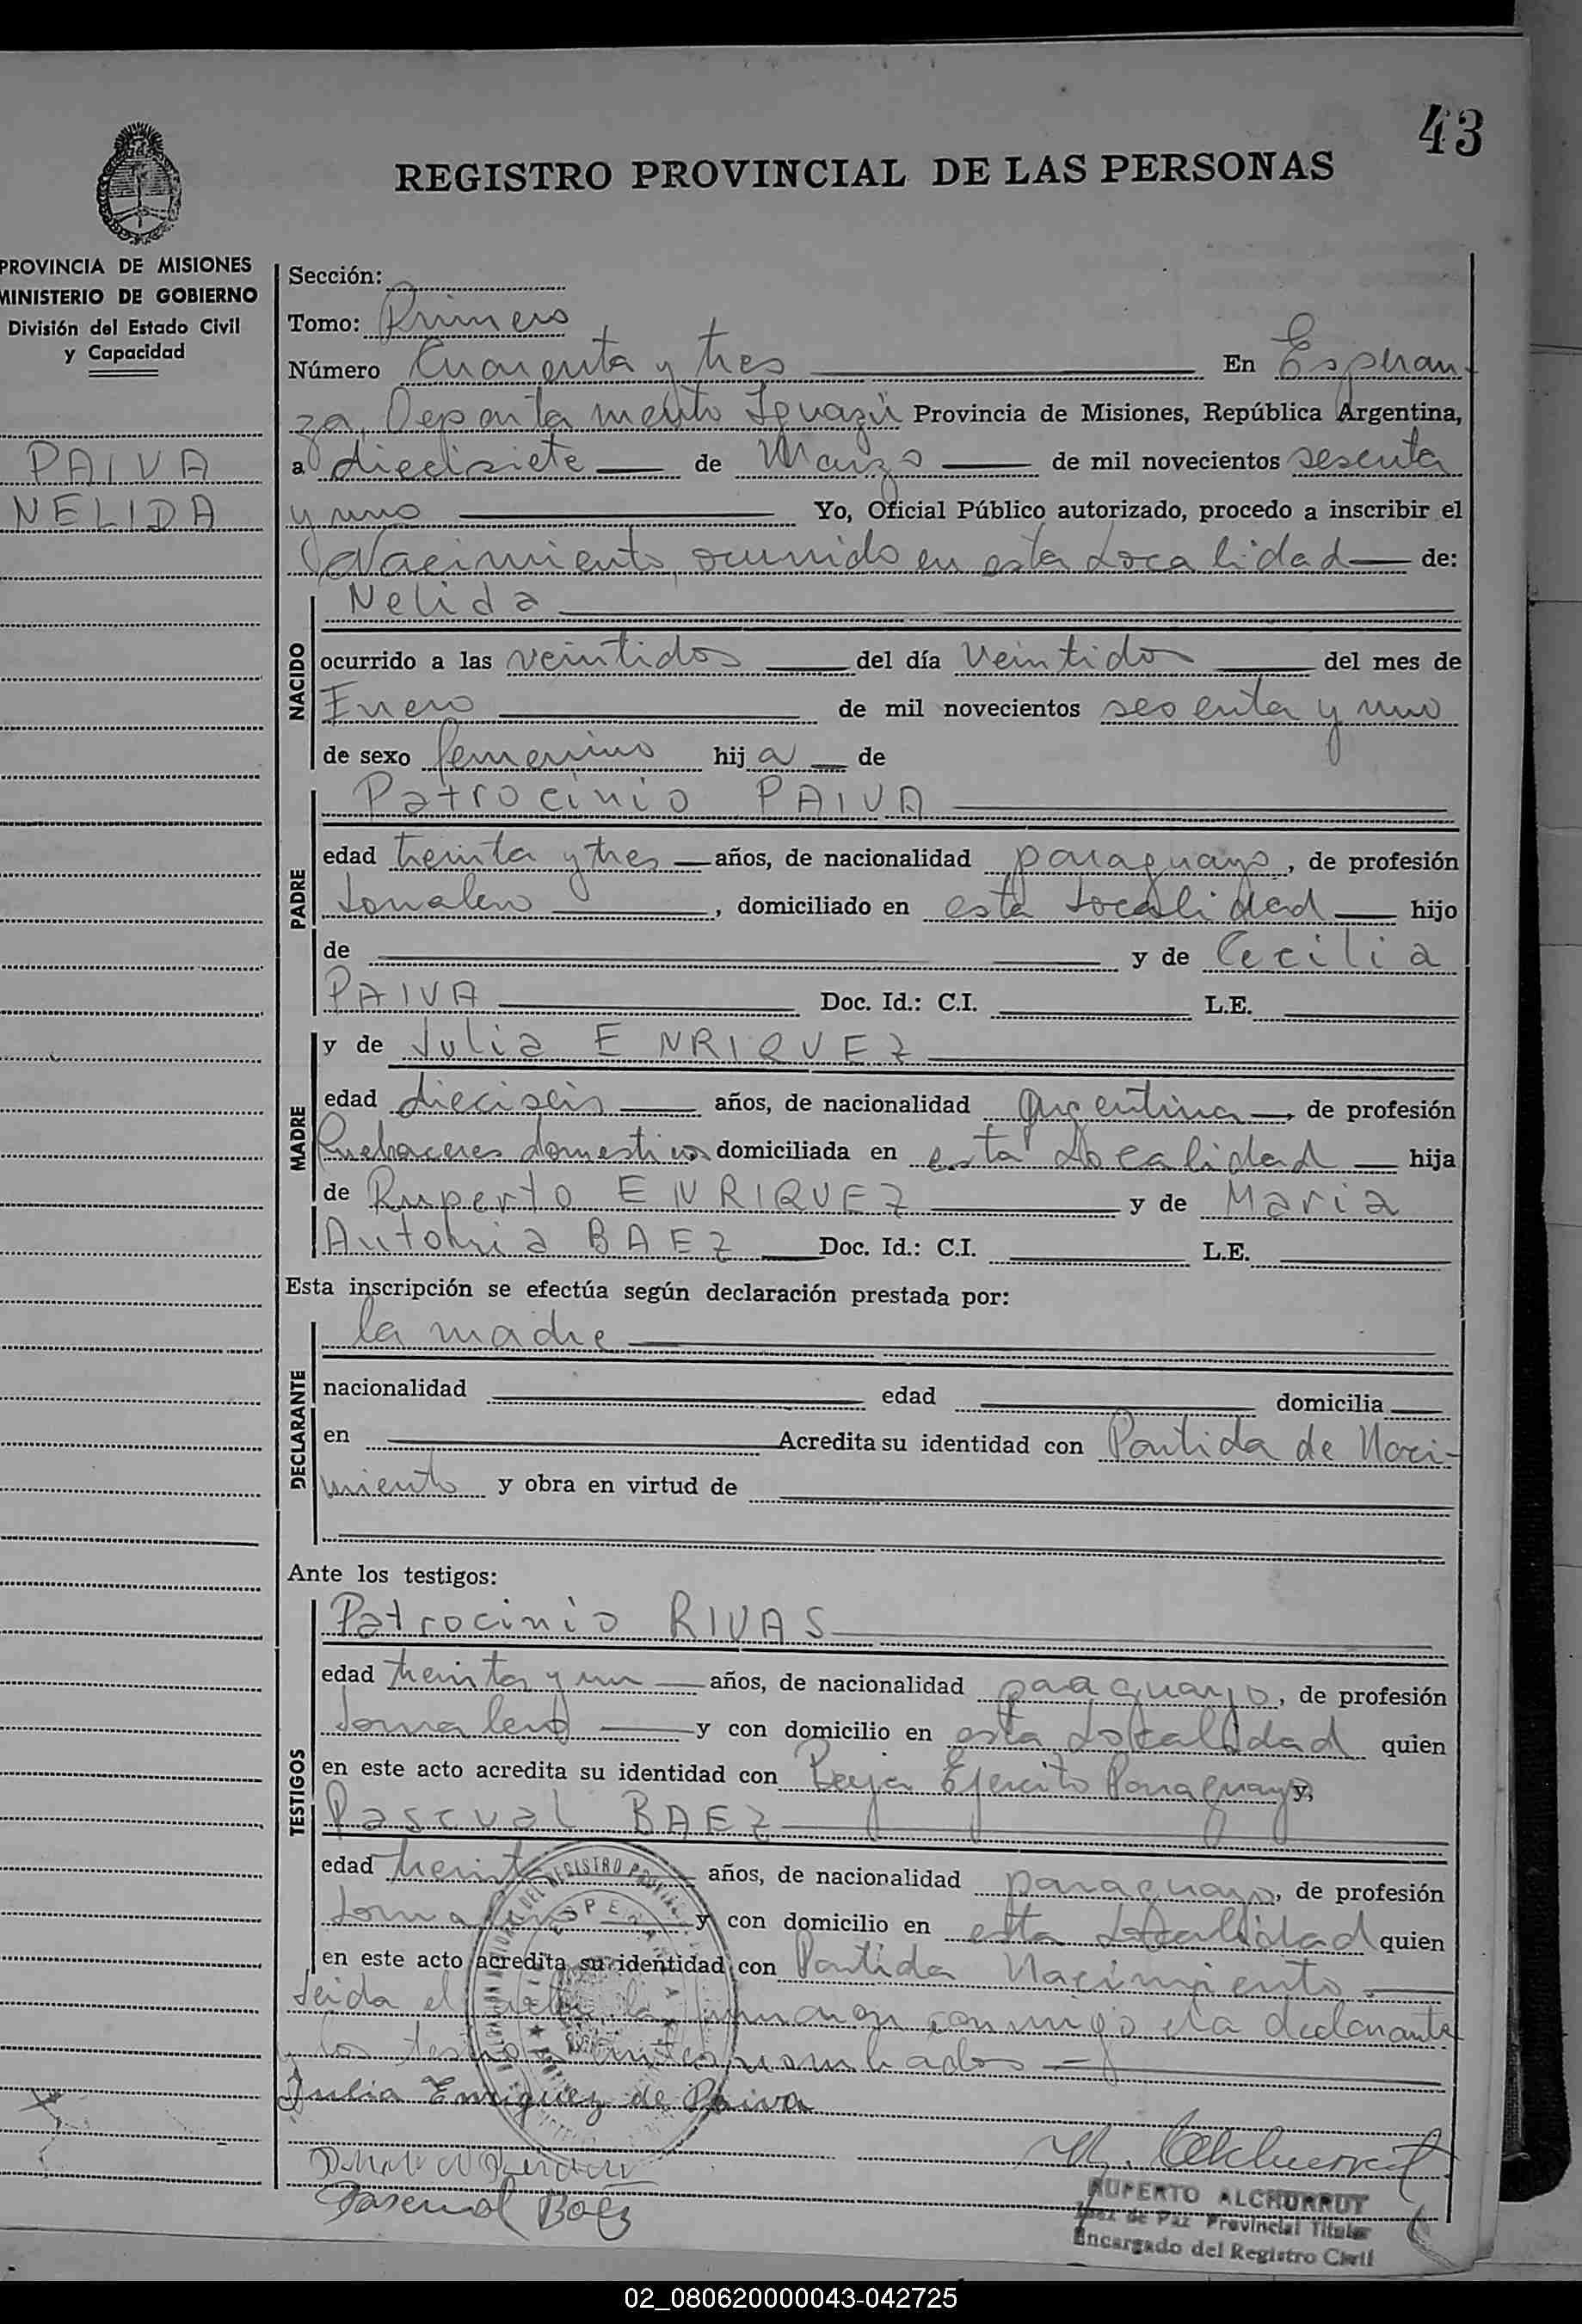 43
REGISTRO PROVINCIAL DE LAS PERSONAS
PROVINCIA DE MISIONES
MINISTERIO DE GOBIERNO
División del Estado Civil
y Capacidad
PAIVA
NELIDA
Sección:
Tomo: Primero
Número Cuarenta y tres En Esperan-
za, Departamento Iguazú Provincia de Misiones, República Argentina,
a diecisiete de Marzo de mil novecientos sesenta
y uno Yo, Oficial Público autorizado, procedo a inscribir el
Nacimiento, ocurrido en esta Localidad de:
Nelida
NACIDO
ocurrido a las veintidos del día Veintidos del mes de
Enero de mil novecientos sesenta y uno
de sexo femenino hija de
Patrocinio PAIVA
PADRE
edad treinta y tres años, de nacionalidad paraguayo, de profesión
Jornalero, domiciliado en esta Localidad hijo
de y de Cecilia
PAIVA Doc. Id.: C.I. L.E.
MADRE
y de Julia ENRIQUEZ
edad dieciseis años, de nacionalidad Argentina, de profesión
Quehaceres domesticos domiciliada en esta Localidad hija
de Ruperto ENRIQUEZ y de Maria
Antonia BAEZ Doc. Id.: C.I. L.E.
Esta inscripción se efectúa según declaración prestada por:
la madre
DECLARANTE
nacionalidad edad domicilia
en Acredita su identidad con Partida de Naci-
miento y obra en virtud de
Ante los testigos:
Patrocinio RIVAS
TESTIGOS
edad treinta y un años, de nacionalidad paraguayo, de profesión
Jornalero y con domicilio en esta Localidad quien
en este acto acredita su identidad con Ejercito Paraguayo y,
Pascual BAEZ
edad treinta años, de nacionalidad paraguayo, de profesión
Jornalero y con domicilio en esta Localidad quien
en este acto acredita su identidad con Partida Nacimiento.
Leida el acta, la firman conmigo la declarante
y los testigos antes nombrados
Julia Enriquez de Paiva
Pascual Baez
RUPERTO ALCHURRUT
Juez de Paz Provincial Titular
Encargado del Registro Civil
02_080620000043-042725